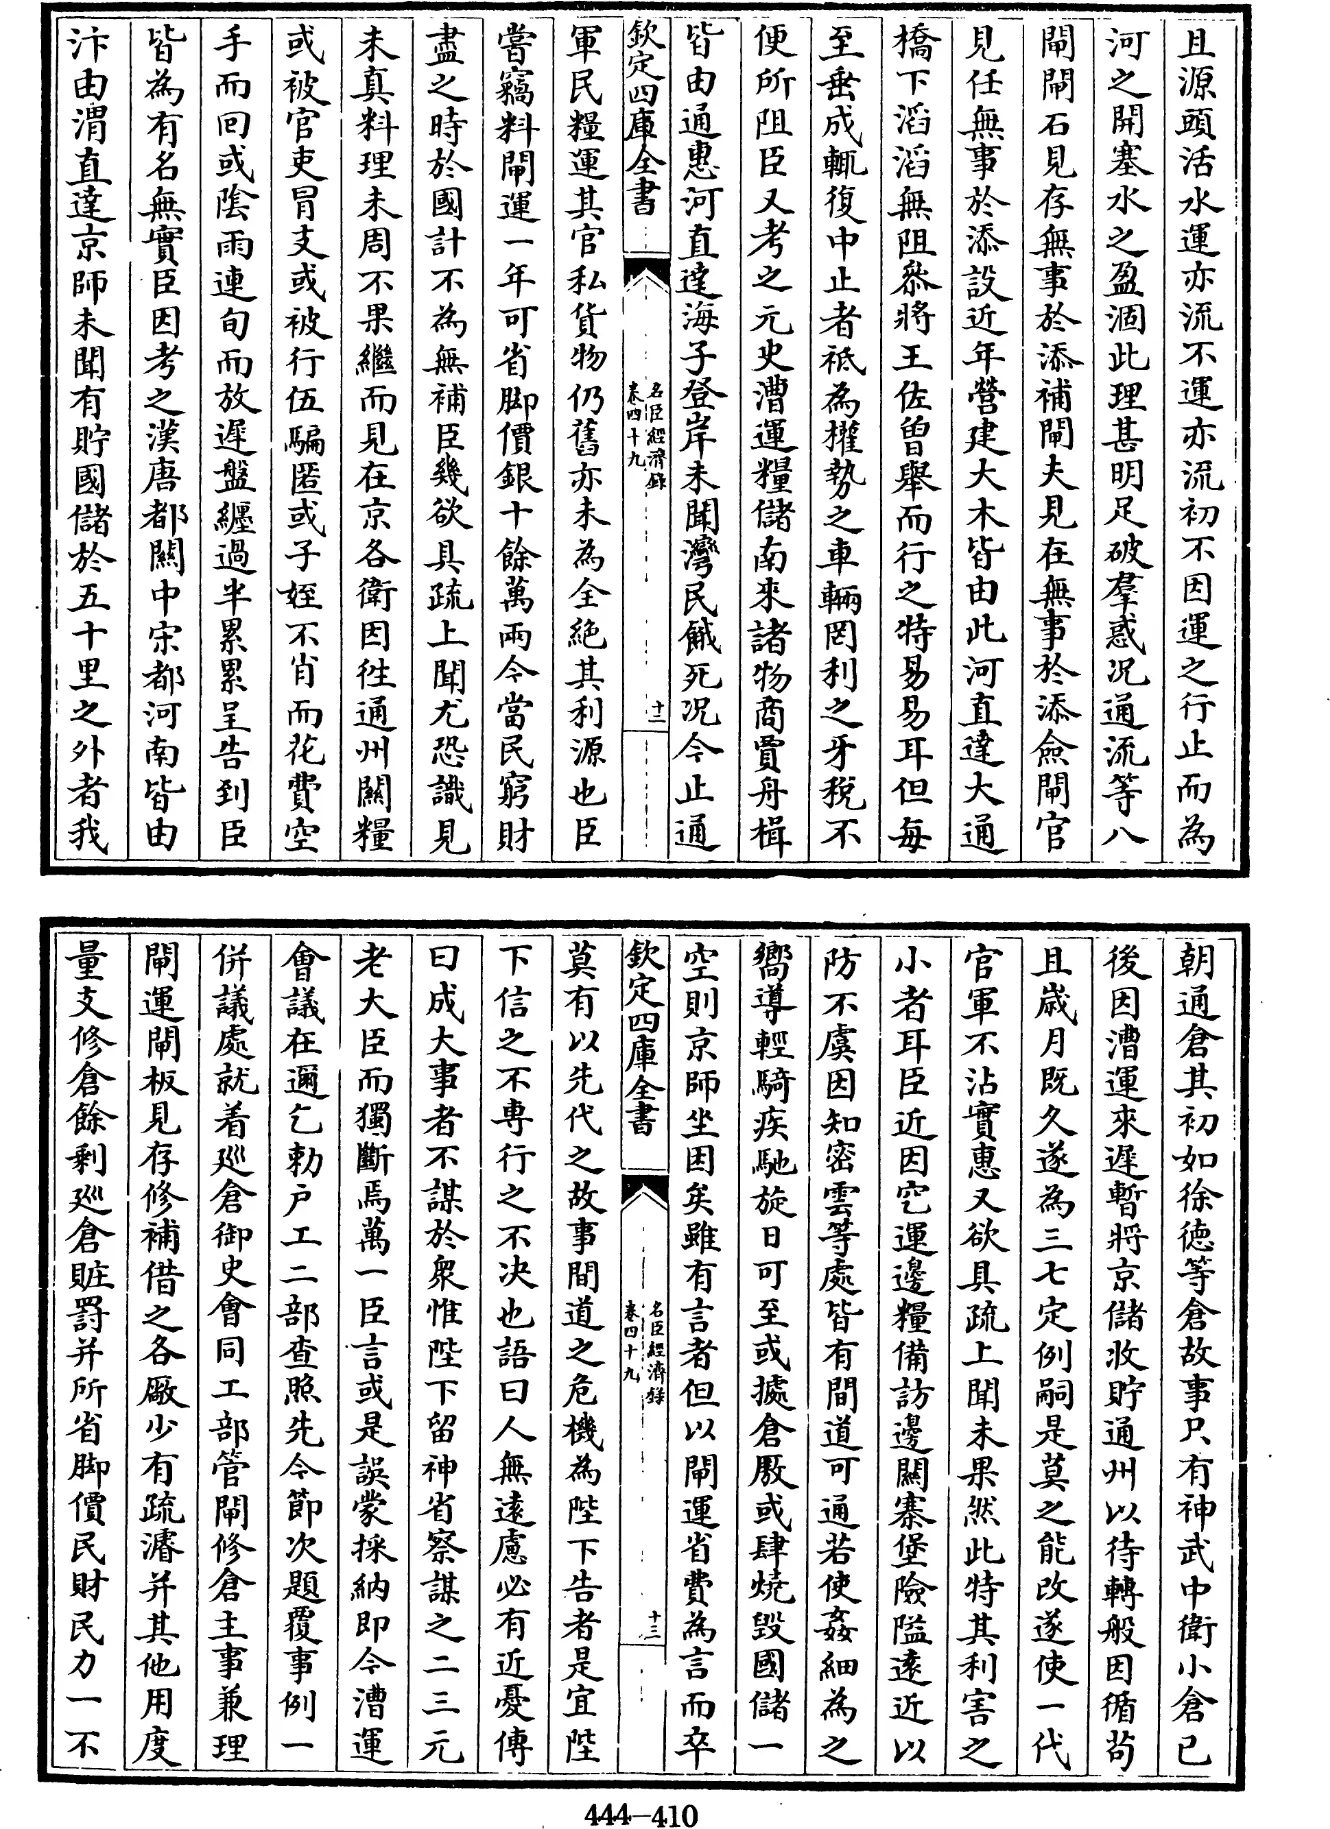 且源頭活水運亦流不運亦流初不因運之行止而為
河之開塞水之盈涸此理甚明足破羣惑况通流等八
閘閘石見存無事於添補閘夫見在無事於添僉閘官
見任無事於添設近年營建大木皆由此河直達大通
橋下滔滔無阻叅將王佐曽舉而行之特易易耳但每
至垂成輒復中止者祗為權勢之車輛罔利之牙稅不
便所阻臣又考之元史漕運糧儲南來諸物商賈舟楫
皆由通惠河直達海子登岸未聞灣民餓死况今止通
欽定四庫全書
名臣經濟錄
卷四十九
十二
軍民糧運其官私貨物仍舊亦未為全絶其利源也臣
嘗竊料閘運一年可省脚價銀十餘萬兩今當民窮財
盡之時於國計不為無補臣幾欲具疏上聞尤恐識見
未真料理未周不果繼而見在京各衛因徃通州關糧
或被官吏冒支或被行伍騙匿或子姪不肖而花費空
手而回或隂雨連旬而放遲盤纏過半累累呈告到臣
皆為有名無實臣因考之漢唐都關中宋都河南皆由
汴由渭直達京師未聞有貯國儲於五十里之外者我
朝通倉其初如徐德等倉故事只有神武中衛小倉已
後因漕運來遲暫將京儲收貯通州以待轉般因循苟
且歲月既久遂為三七定例嗣是莫之能改遂使一代
官軍不沾實惠又欲具疏上聞未果然此特其利害之
小者耳臣近因空運邊糧備訪邊關寨堡險隘遠近以
防不虞因知密雲等處皆有間道可通若使姦細為之
嚮導輕騎疾馳旋日可至或據倉厫或肆燒毀國儲一
空則京師坐困矣雖有言者但以閘運省費為言而卒
欽定四庫全書
名臣經濟錄
卷四十九
十三
莫有以先代之故事間道之危機為陛下告者是宜陛
下信之不專行之不决也語曰人無遠慮必有近憂傳
曰成大事者不謀於衆惟陛下留神省察謀之二三元
老大臣而獨斷焉萬一臣言或是誤蒙採納即今漕運
會議在邇乞勅户工二部查照先今節次題覆事例一
併議處就着廵倉御史會同工部管閘修倉主事兼理
閘運閘板見存修補借之各廠少有疏濬并其他用度
量支修倉餘剩廵倉贓罰并所省脚價民財民力一不
444-410